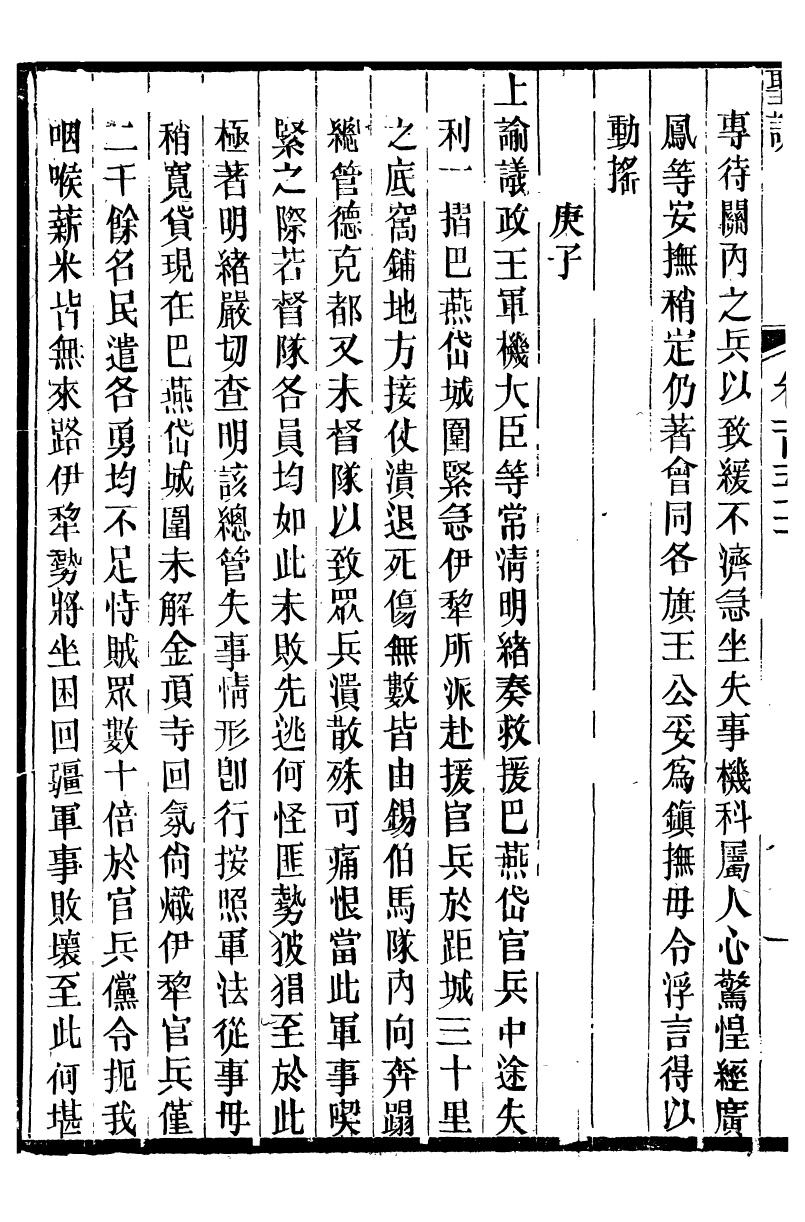 聖訓
專待關內之兵以致緩不濟急坐失事機科屬人心驚惶經廣
鳳等安撫稍定仍著會同各旗王公妥爲鎮撫毋令浮言得以
動搖
庚子
上諭議政王軍機大臣等常清明緒奏救援巴燕岱官兵中途失
利一摺巴燕岱城圍緊急伊犂所派赴援官兵於距城三十里
之底窩鋪地方接仗潰退死傷無數皆由錫伯馬隊內向奔蹋
總管德克都又未督隊以致眾兵潰散殊可痛恨當此軍事喫
緊之際若督隊各員均如此未敗先逃何怪匪勢狓猖至於此
極著明緒嚴切查明該總管失事情形卽行按照軍法從事毋
稍寬貸現在巴燕岱城圍未解金頂寺回氛尙熾伊犂官兵僅
二千餘名民遣各勇均不足恃賊眾數十倍於官兵儻令扼我
咽喉薪米皆無來路伊犂勢將坐困回疆軍事敗壞至此何堪